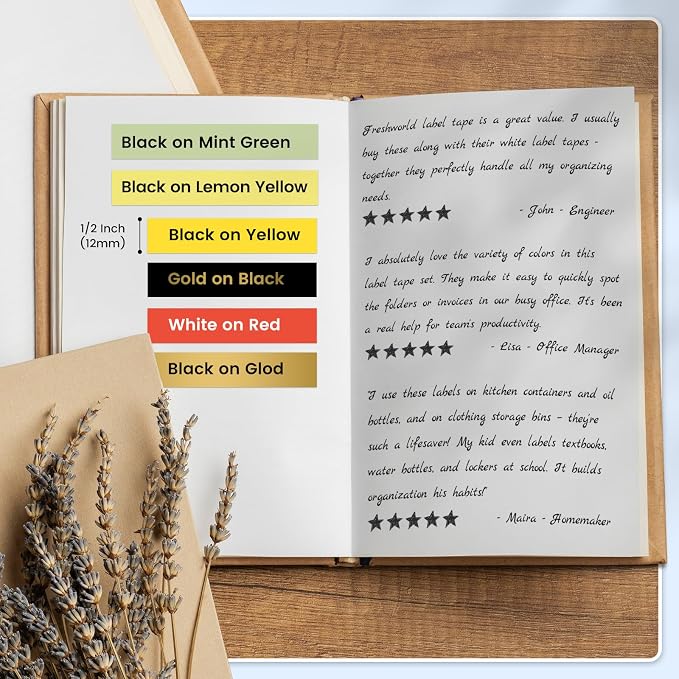 Black on Mint Green
Black on Lemon Yellow
1/2 Inch
(12mm)
Black on Yellow
Gold on Black
White on Red
Black on Glod
Freshworld label tape is a great value. I usually
buy these along with their white label tapes -
together they perfectly handle all my organizing
needs.
- John - Engineer
I absolutely love the variety of colors in this
label tape set. They make it easy to quickly spot
the folders or invoices in our busy office. It's been
a real help for team's productivity.
- Lisa - Office Manager
"I use these labels on kitchen containers and oil
bottles, and on clothing storage bins – they're
such a lifesaver! My kid even labels textbooks,
water bottles, and lockers at school. It builds
organization his habits!"
- Maira - Homemaker